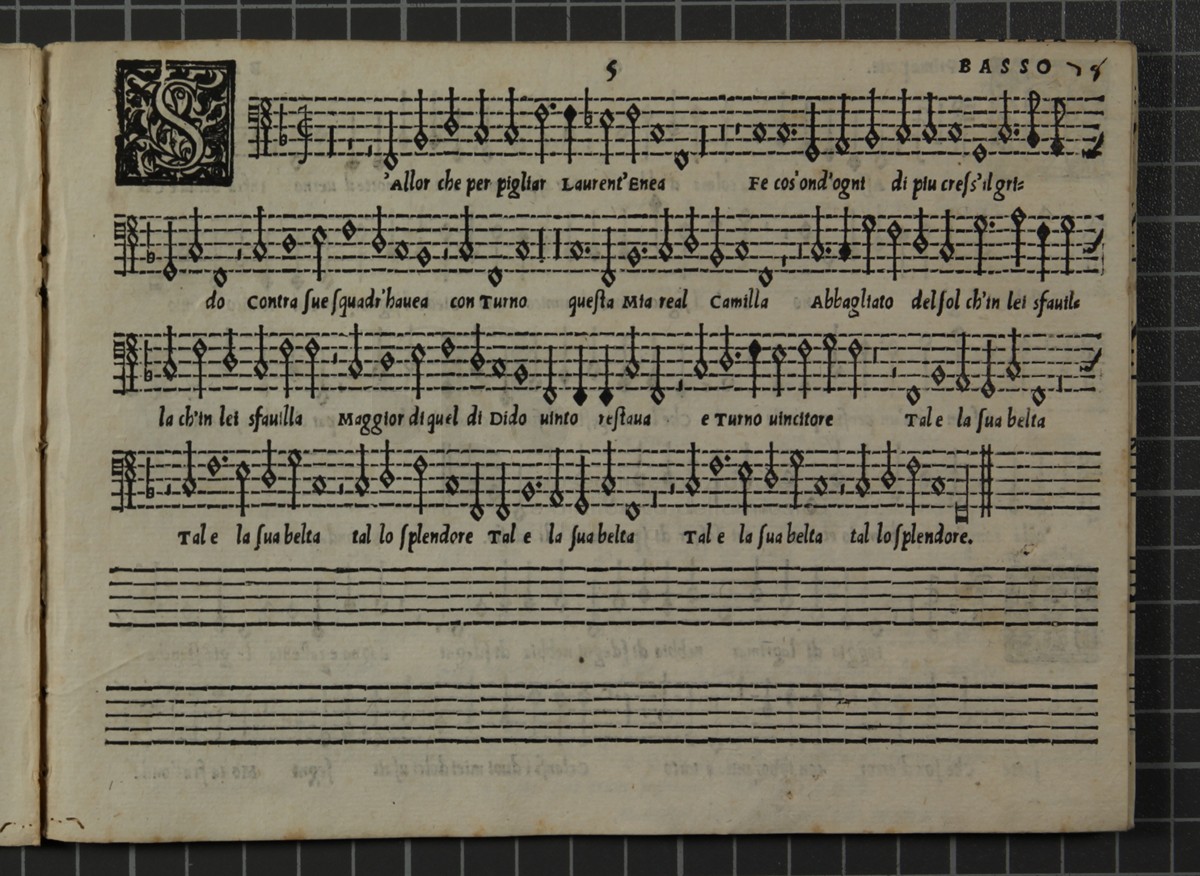 5
BASSO
S'Allor che per pigliar Laurent'Enea Fe cos'ond'ogni di piu cresſ'il gri=
do Contra ſue ſquadr'hauea con Turno queſta Mia real Camilla Abbagliato del ſol ch'in lei sfauil=
la ch'in lei sfauilla Maggior di quel di Dido uinto reſtaua e Turno uincitore Tal e la ſua belta
Tal e la ſua belta tal lo ſplendore Tal e la ſua belta Tal e la ſua belta tal lo ſplendore.